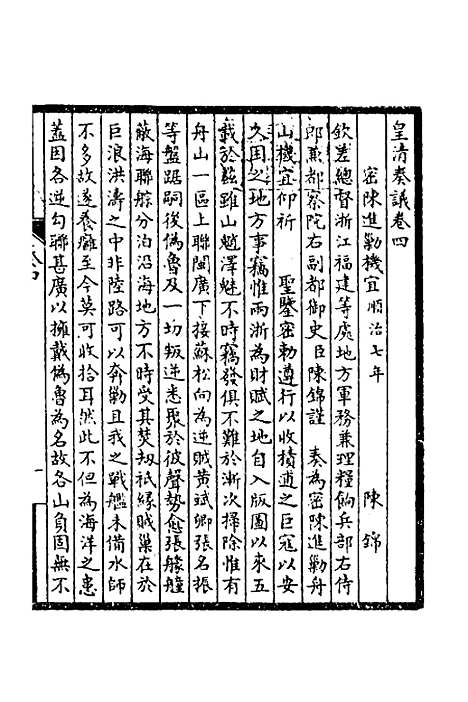 皇清奏議卷四
密陳進勦機宜順治七年 陳錦
欽差總督浙江福建等處地方軍務兼理糧餉兵部右侍
郎兼都察院右副都御史臣陳錦謹 奏為密陳進勦舟
山機宜仰祈 聖鑒密勅遵行以收積逋之巨寇以安
久困之地方事竊惟兩浙為財賦之地自入版圖以來五
載於茲雖山魈澤魅不時竊發俱不難於漸次掃除惟有
舟山一區上聯閩廣下接蘇松向為逆賊黃斌卿張名振
等盤踞嗣後偽魯及一切叛逆悉聚於彼聲勢愈張艨艟
蔽海聯䑸分泊沿海地方不時受其焚刼祇緣賊巢在於
巨浪洪濤之中非陸路可以奔勦且我之戰艦未備水師
不多故遂養癰至今莫可收拾耳然此不但為海洋之患
蓋因各逆勾聯甚廣以擁戴偽魯為名故各山負固無不